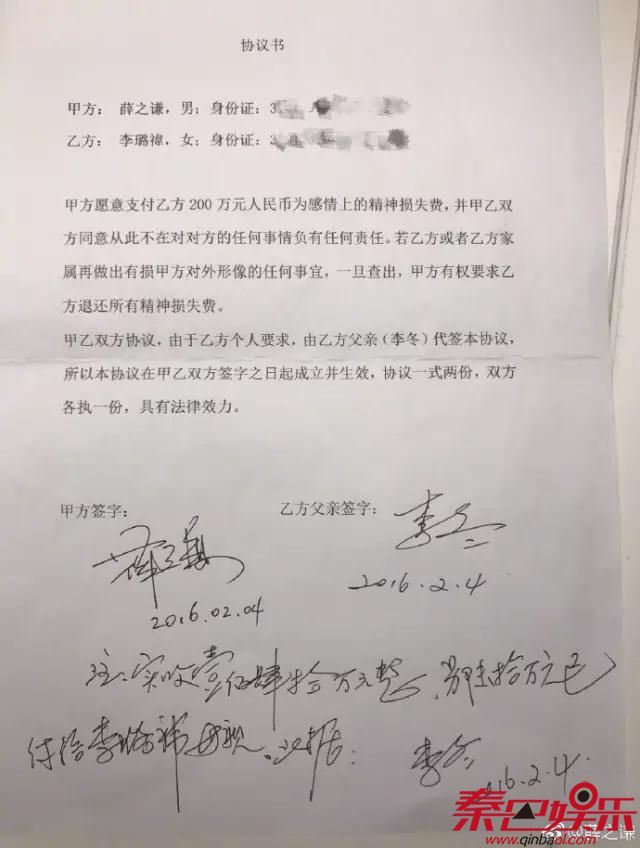 协议书
甲方： 薛之谦，男；身份证：3
乙方： 李璐禕，女；身份证：3
甲方愿意支付乙方 200 万元人民币为感情上的精神损失费，并甲乙双
方同意从此不在对对方的任何事情负有任何责任。若乙方或者乙方家
属再做出有损甲方对外形像的任何事宜，一旦查出，甲方有权要求乙
方退还所有精神损失费。
甲乙双方协议，由于乙方个人要求，由乙方父亲（李冬）代签本协议，
所以本协议在甲乙双方签字之日起成立并生效，协议一式两份，双方
各执一份，具有法律效力。
甲方签字： 乙方父亲签字：
薛之谦 李冬
2016.02.04 2016.2.4
注：实收壹佰肆拾万元整，拾万元已
付给李璐禕母亲。
李冬
2016.2.4.
秦巴娱乐
www.qinbaol.com
@薛之谦